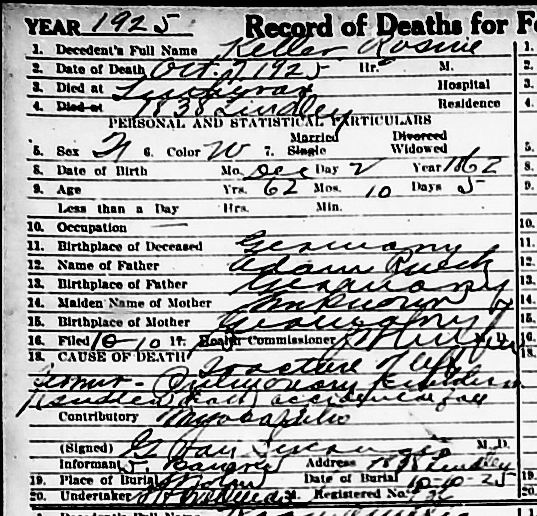 YEAR 1925 Record of Deaths for F
1. Decedent's Full Name Keller Rosine 1.
2. Date of Death Oct. 7, 1925 Hr. M. 2.
3. Died at Lutheran Hospital 3.
4. Died at 1838 Lindley Residence 4.
PERSONAL AND STATISTICAL PARTICULARS
Married Divorced
5. Sex F 6. Color W 7. Single Widowed 5.
8. Date of Birth Mo. Dec Day 2 Year 1862 8.
9. Age Yrs. 62 Mos. 10 Days 5 9.
Less than a Day Hrs. Min.
10. Occupation 10.
11. Birthplace of Deceased Germany 11.
12. Name of Father Adam 12.
13. Birthplace of Father Germany 13.
14. Maiden Name of Mother Unknown 14.
15. Birthplace of Mother Germany 15.
16. Filed 10-10 17. Health Commissioner 16.
18. CAUSE OF DEATH Fracture of left 18.
femur - Pulmonary Embolism
(sudden death) accidental fall
Contributory
(Signed) M. D.
Informant Address 1838 Lindley
19. Place of Burial Date of Burial 10-10-25 19.
20. Undertaker 21. Registered No. 20.